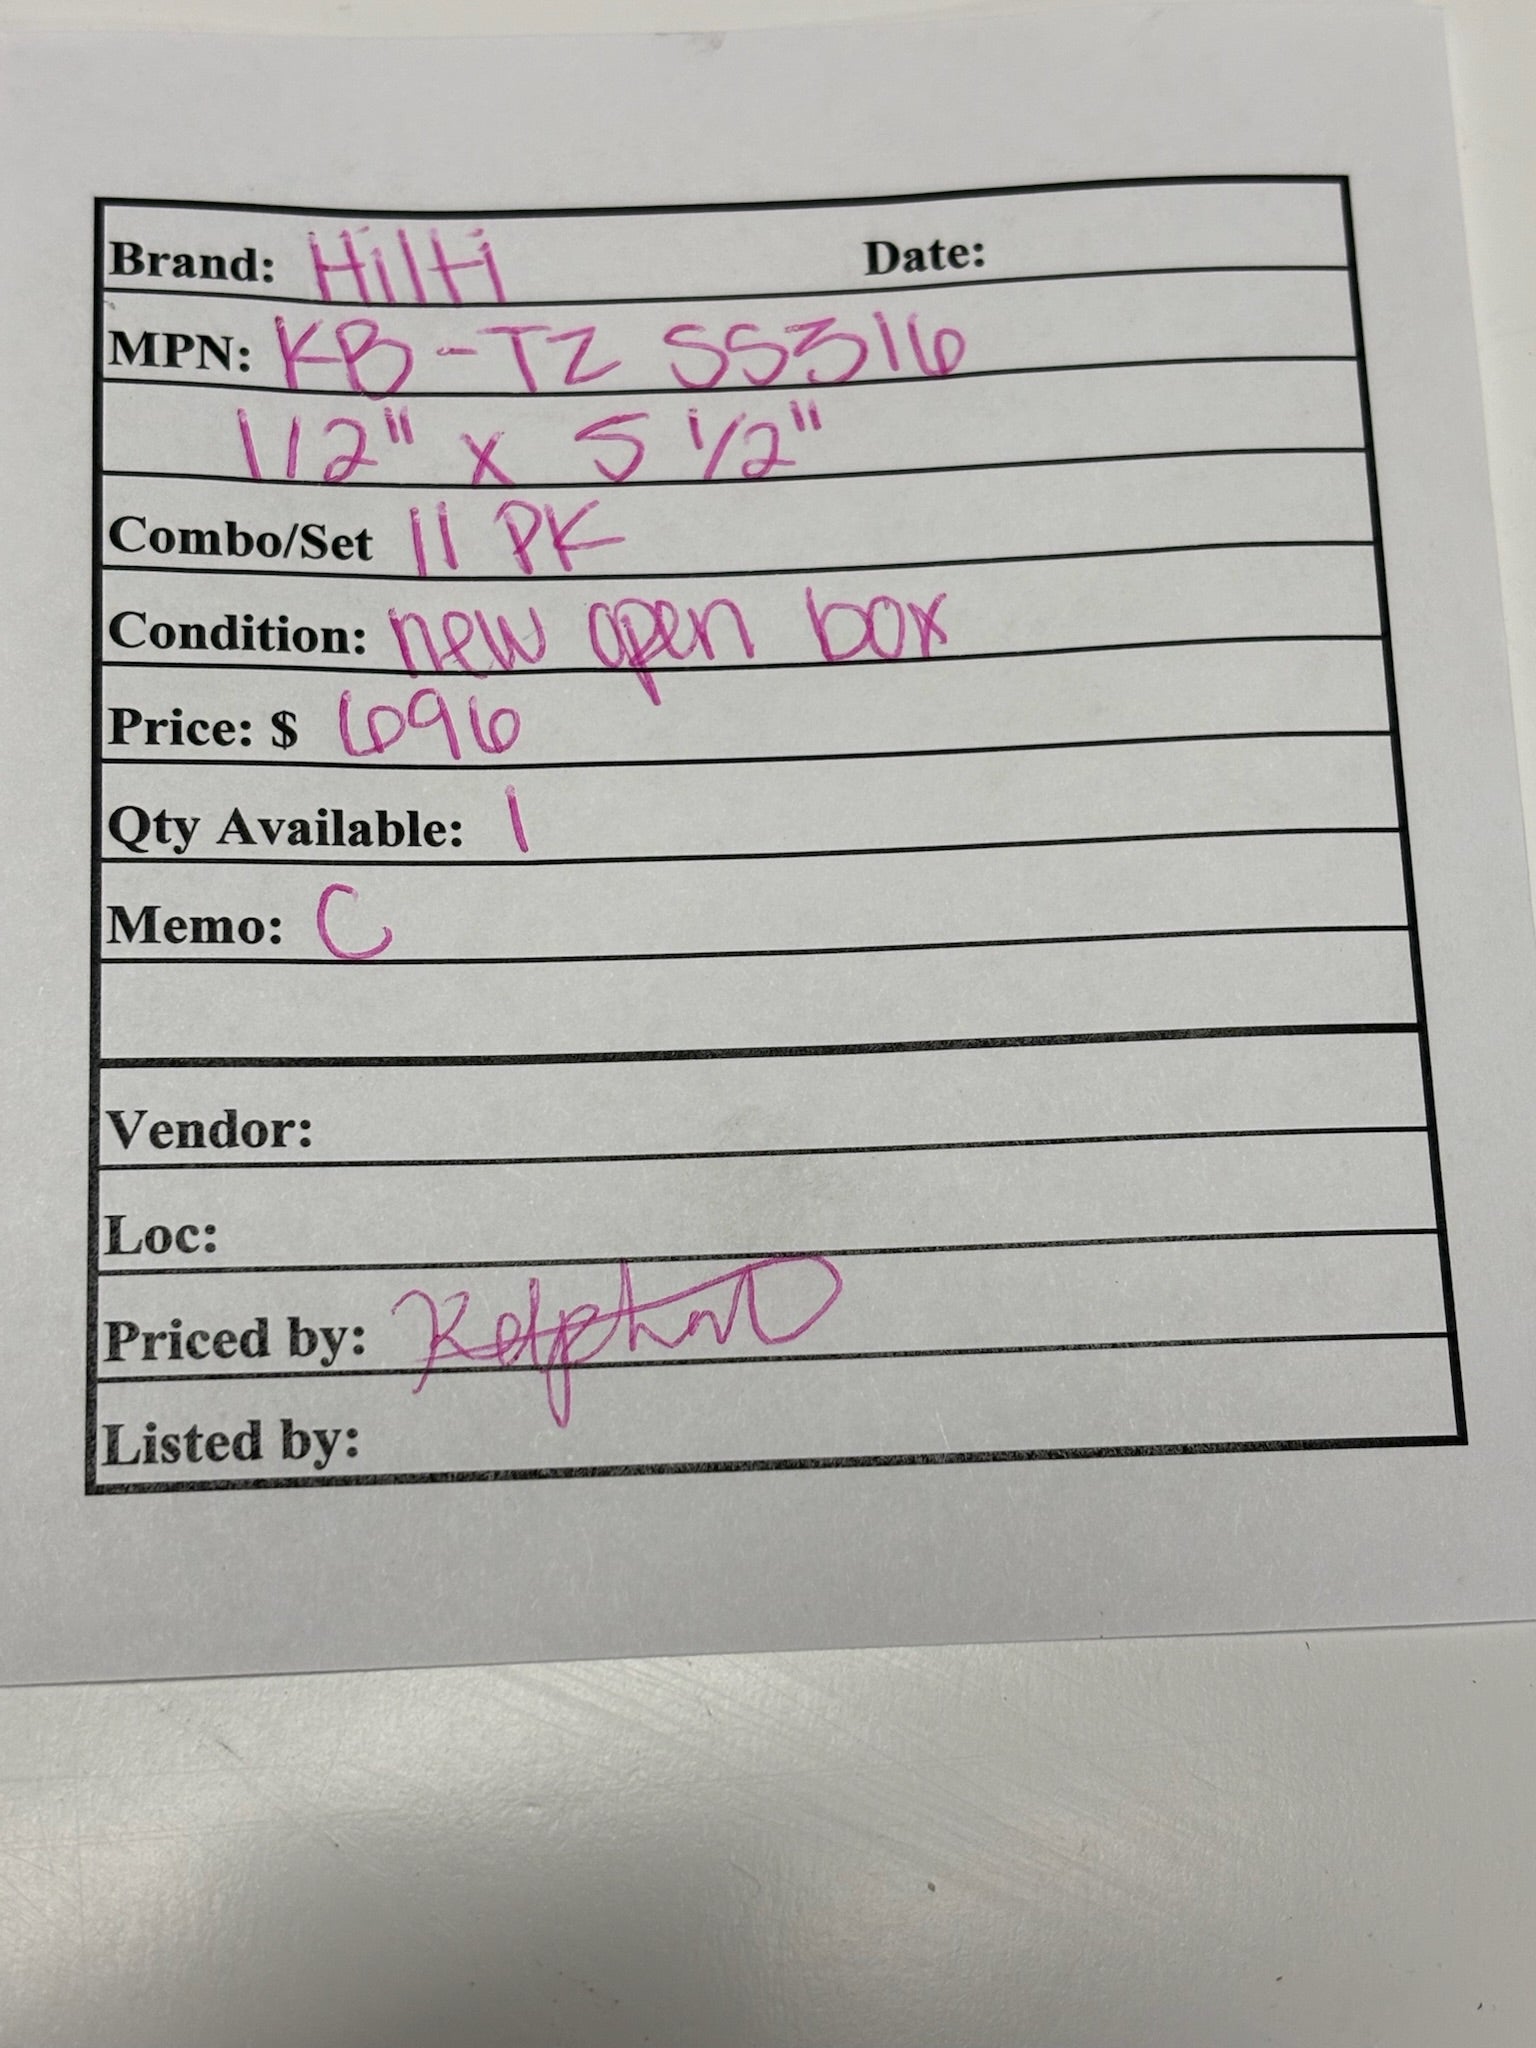 Brand: Hilti Date:
MPN: KB-TZ SS316
1/2" x 5 1/2"
Combo/Set 11 PK
Condition: new open box
Price: $ 696
Qty Available: 1
Memo: C
Vendor:
Loc:
Priced by:
Listed by: